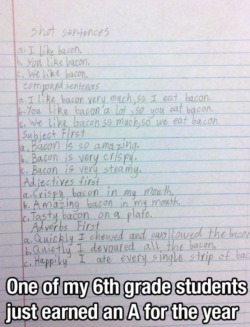 shot sentences
a. I like bacon.
b. You like bacon.
c. We like bacon
compound sentences
a. I like bacon very much, so I eat bacon.
b. You like bacon a lot, so you eat bacon.
c. We like bacon so much, so we eat bacon
Subject First
a. Bacon is so amazing.
b. Bacon is very crispy.
c. Bacon is very steamy.
Adjectives first
a. Crispy bacon in my mouth
b. Amazing bacon in my mouth
c. Tasty bacon on a plate.
Adverbs First
a. Quickly I chewed and swallowed the bacon
b. Quietly I devoured all the bacon
c. Happily I ate every single strip of
One of my 6th grade students
just earned an A for the year